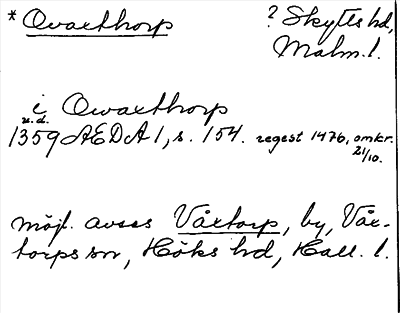 * Qvaxthorp ? Skytts hd,
Malm. l.
i Qwaxthorp
u.d.
1359 AEDA 1, s. 154. regest 1476, omkr.
21/10.
möjl. avses Våxtorp, by, Våx-
torps sn, Höks hd, Hall. l.